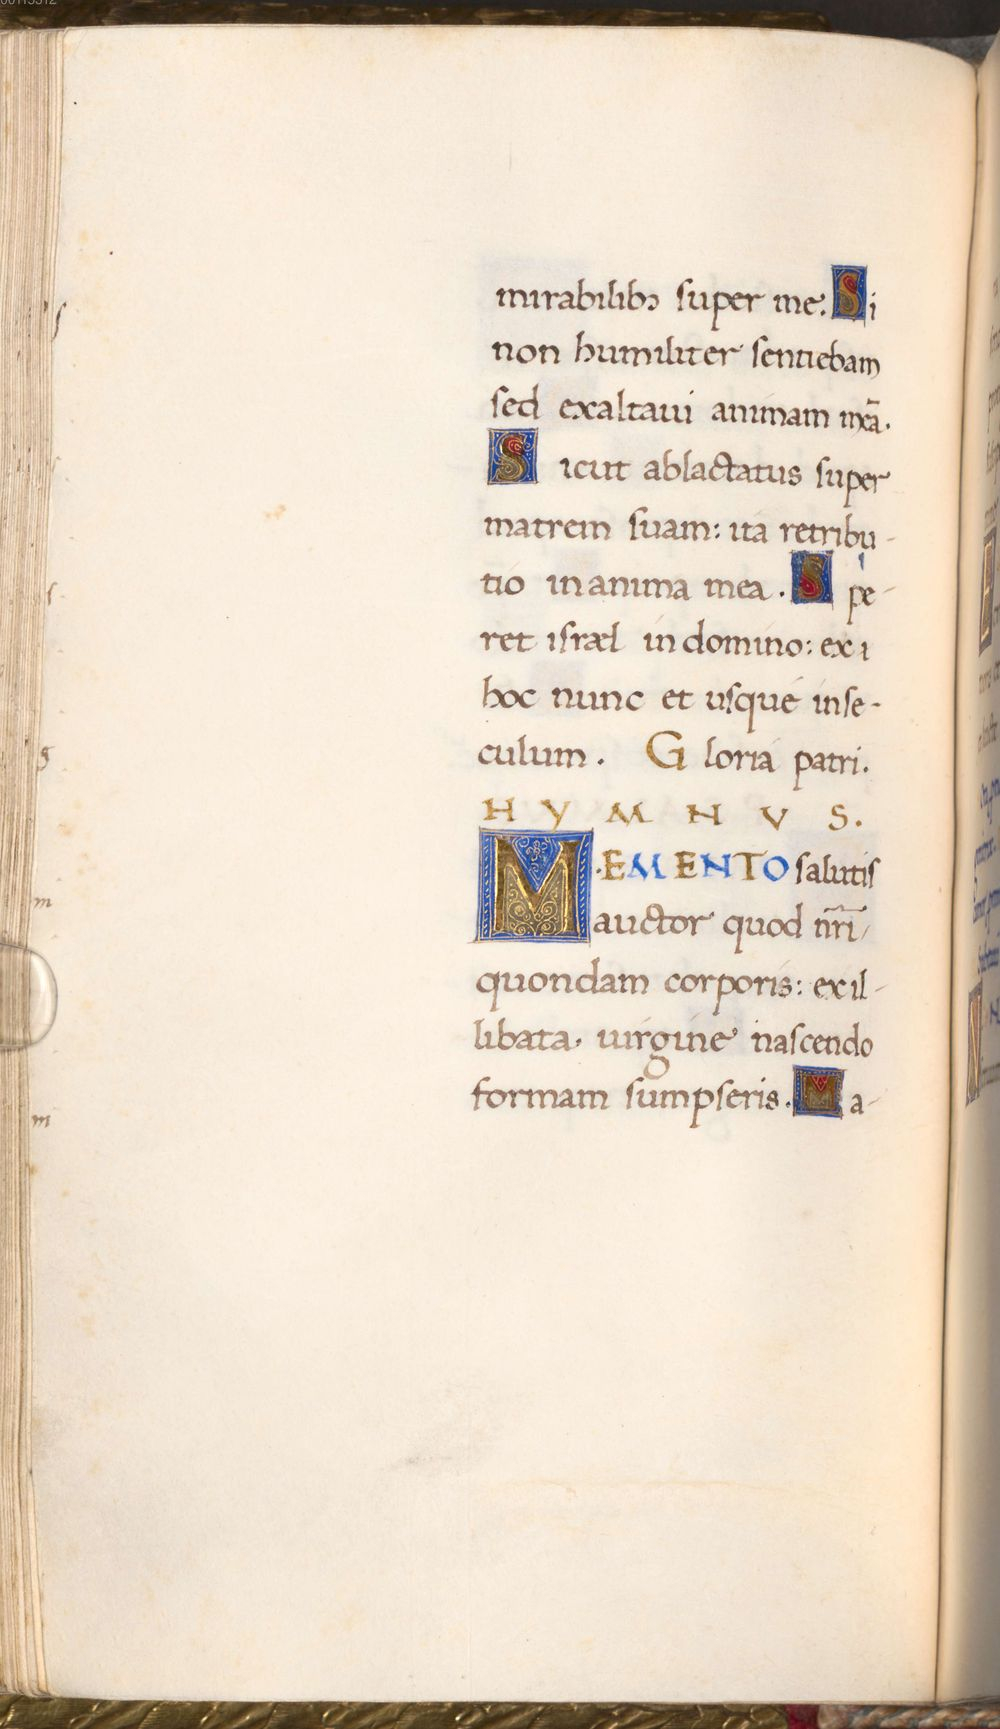 mirabilibꝫ super me. Si
non humiliter sentiebam
sed exaltaui animam meā.
Sicut ablactatus super
matrem suam: ita retribu-
tio in anima mea. Spe-
ret israel in domino: ex i
hoc nunc et usque in se-
culum. Gloria patri.
HYMNVS.
MEMENTO salutis
auctor quod nr̄i
quondam corporis: ex il-
libata uirgine nascendo
formam sumpseris. Ma-